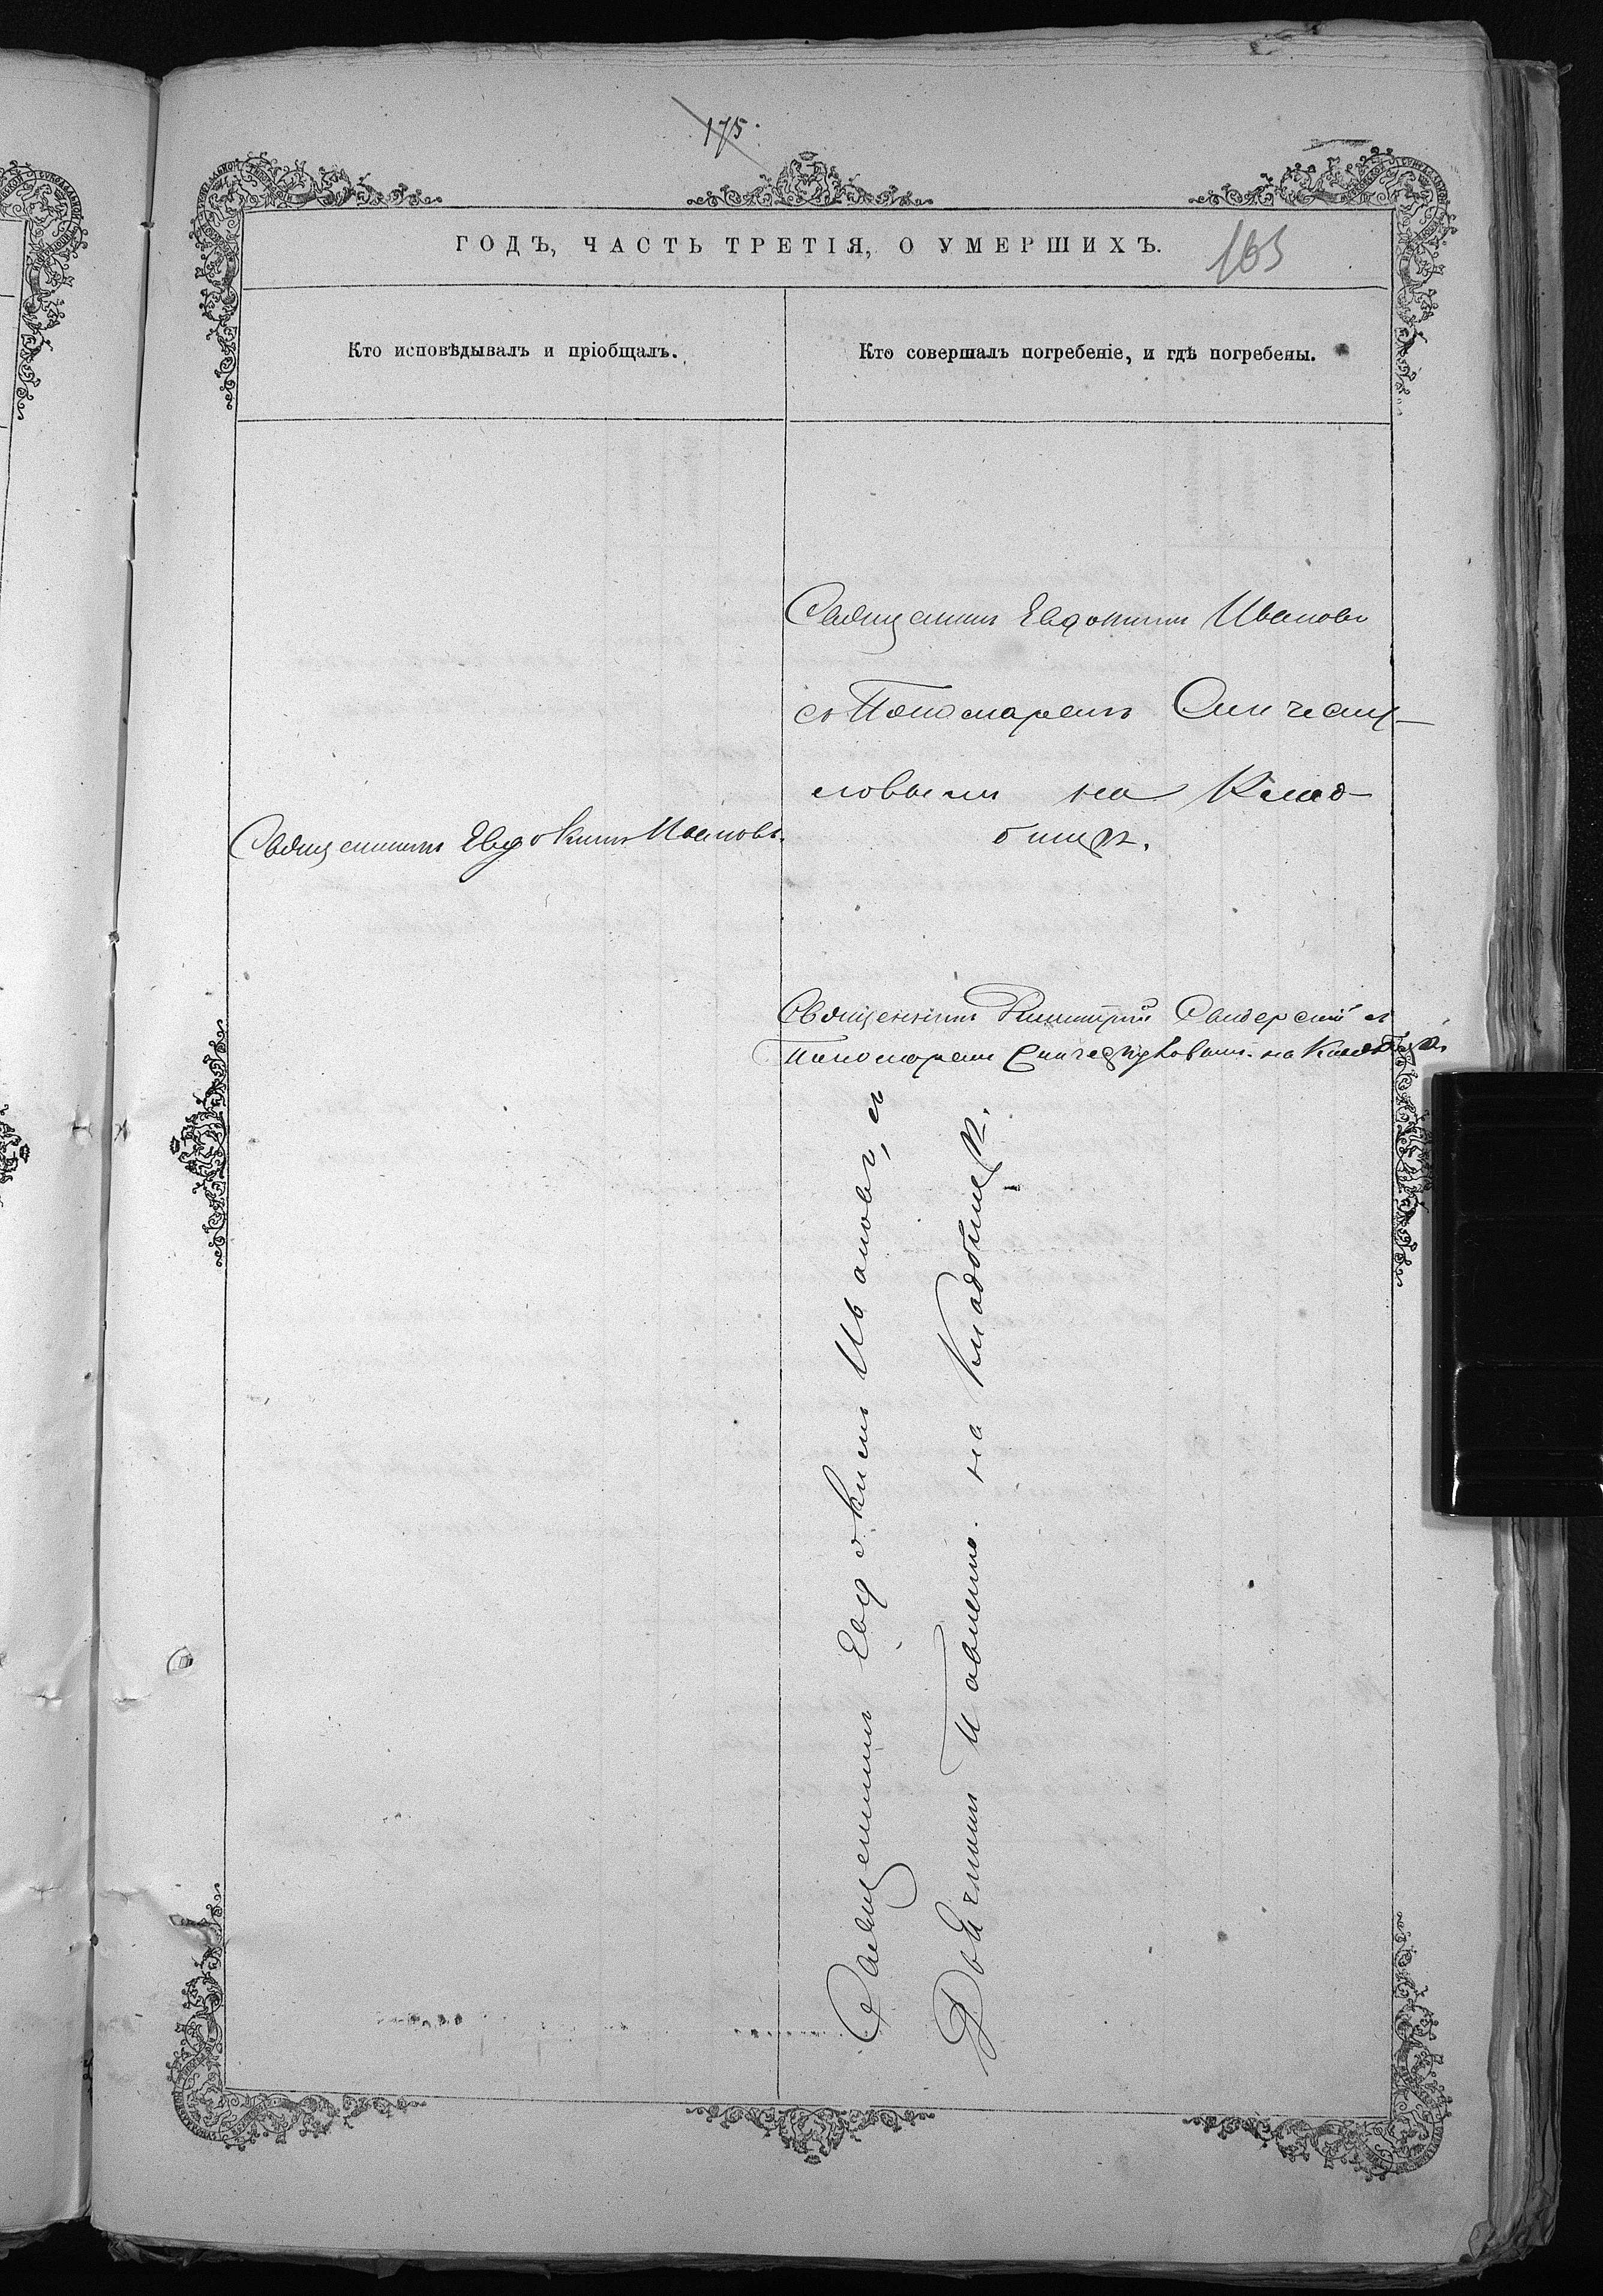 175.
ГОДЪ, ЧАСТЬ ТРЕТІЯ, О УМЕРШИХЪ.
Кто исповѣдывалъ и пріобщалъ.
Кто совершалъ погребеніе, и гдѣ погребены.
Священникъ Евдокимъ Ивановъ.
Священникъ Евдокимъ Ивановъ
съ Пономаремъ
на Клад-
бищѣ.
Священникъ Димитрій съ
Пономаремъ на Кладбищѣ
Священникъ Евдокимъ Ивановъ, съ
Дьячкомъ на Кладбищѣ.